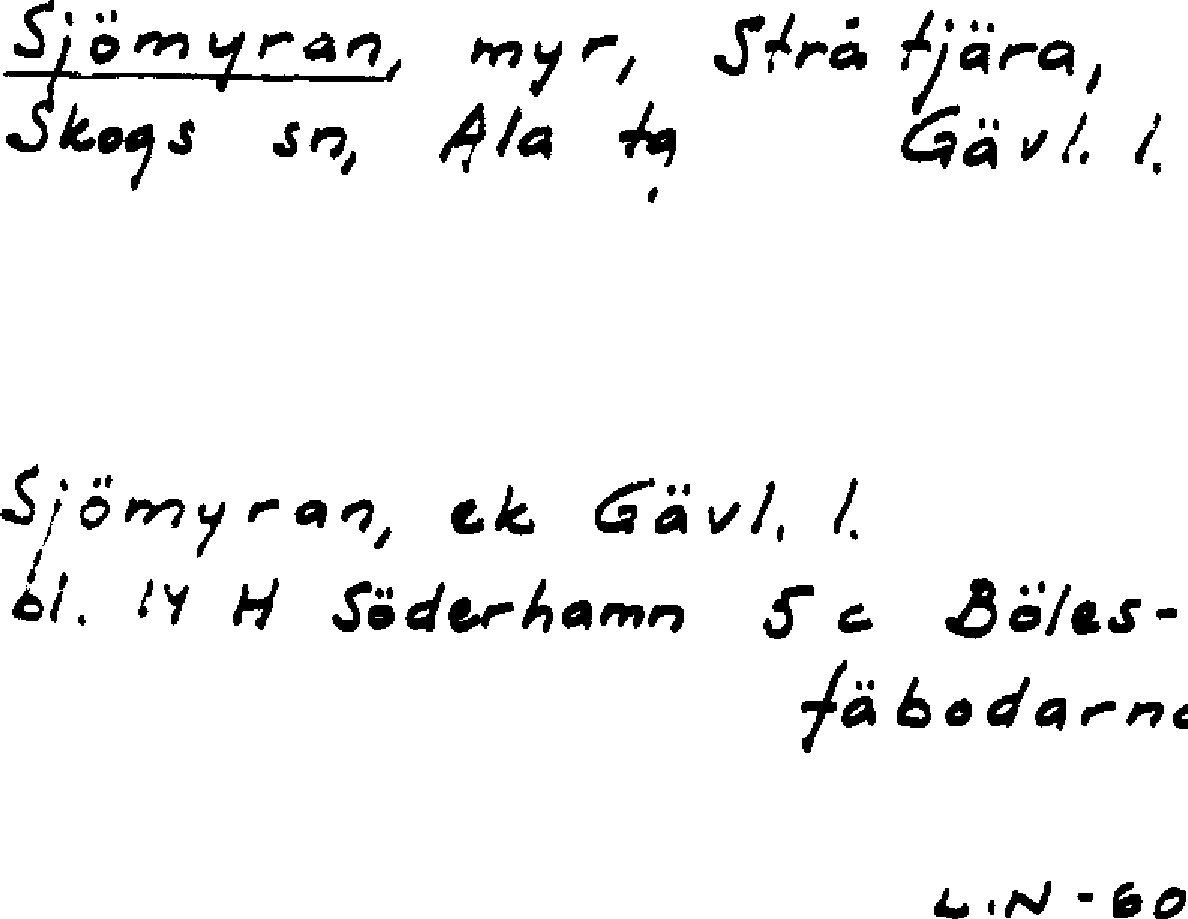 Sjömyran, myr, Stråtjära,
Skogs sn, Ala tg Gävl. l.
Sjömyran, ek Gävl. l.
bl. 14 H Söderhamn 5 c Böles-
fäbodarna
L.N - 60